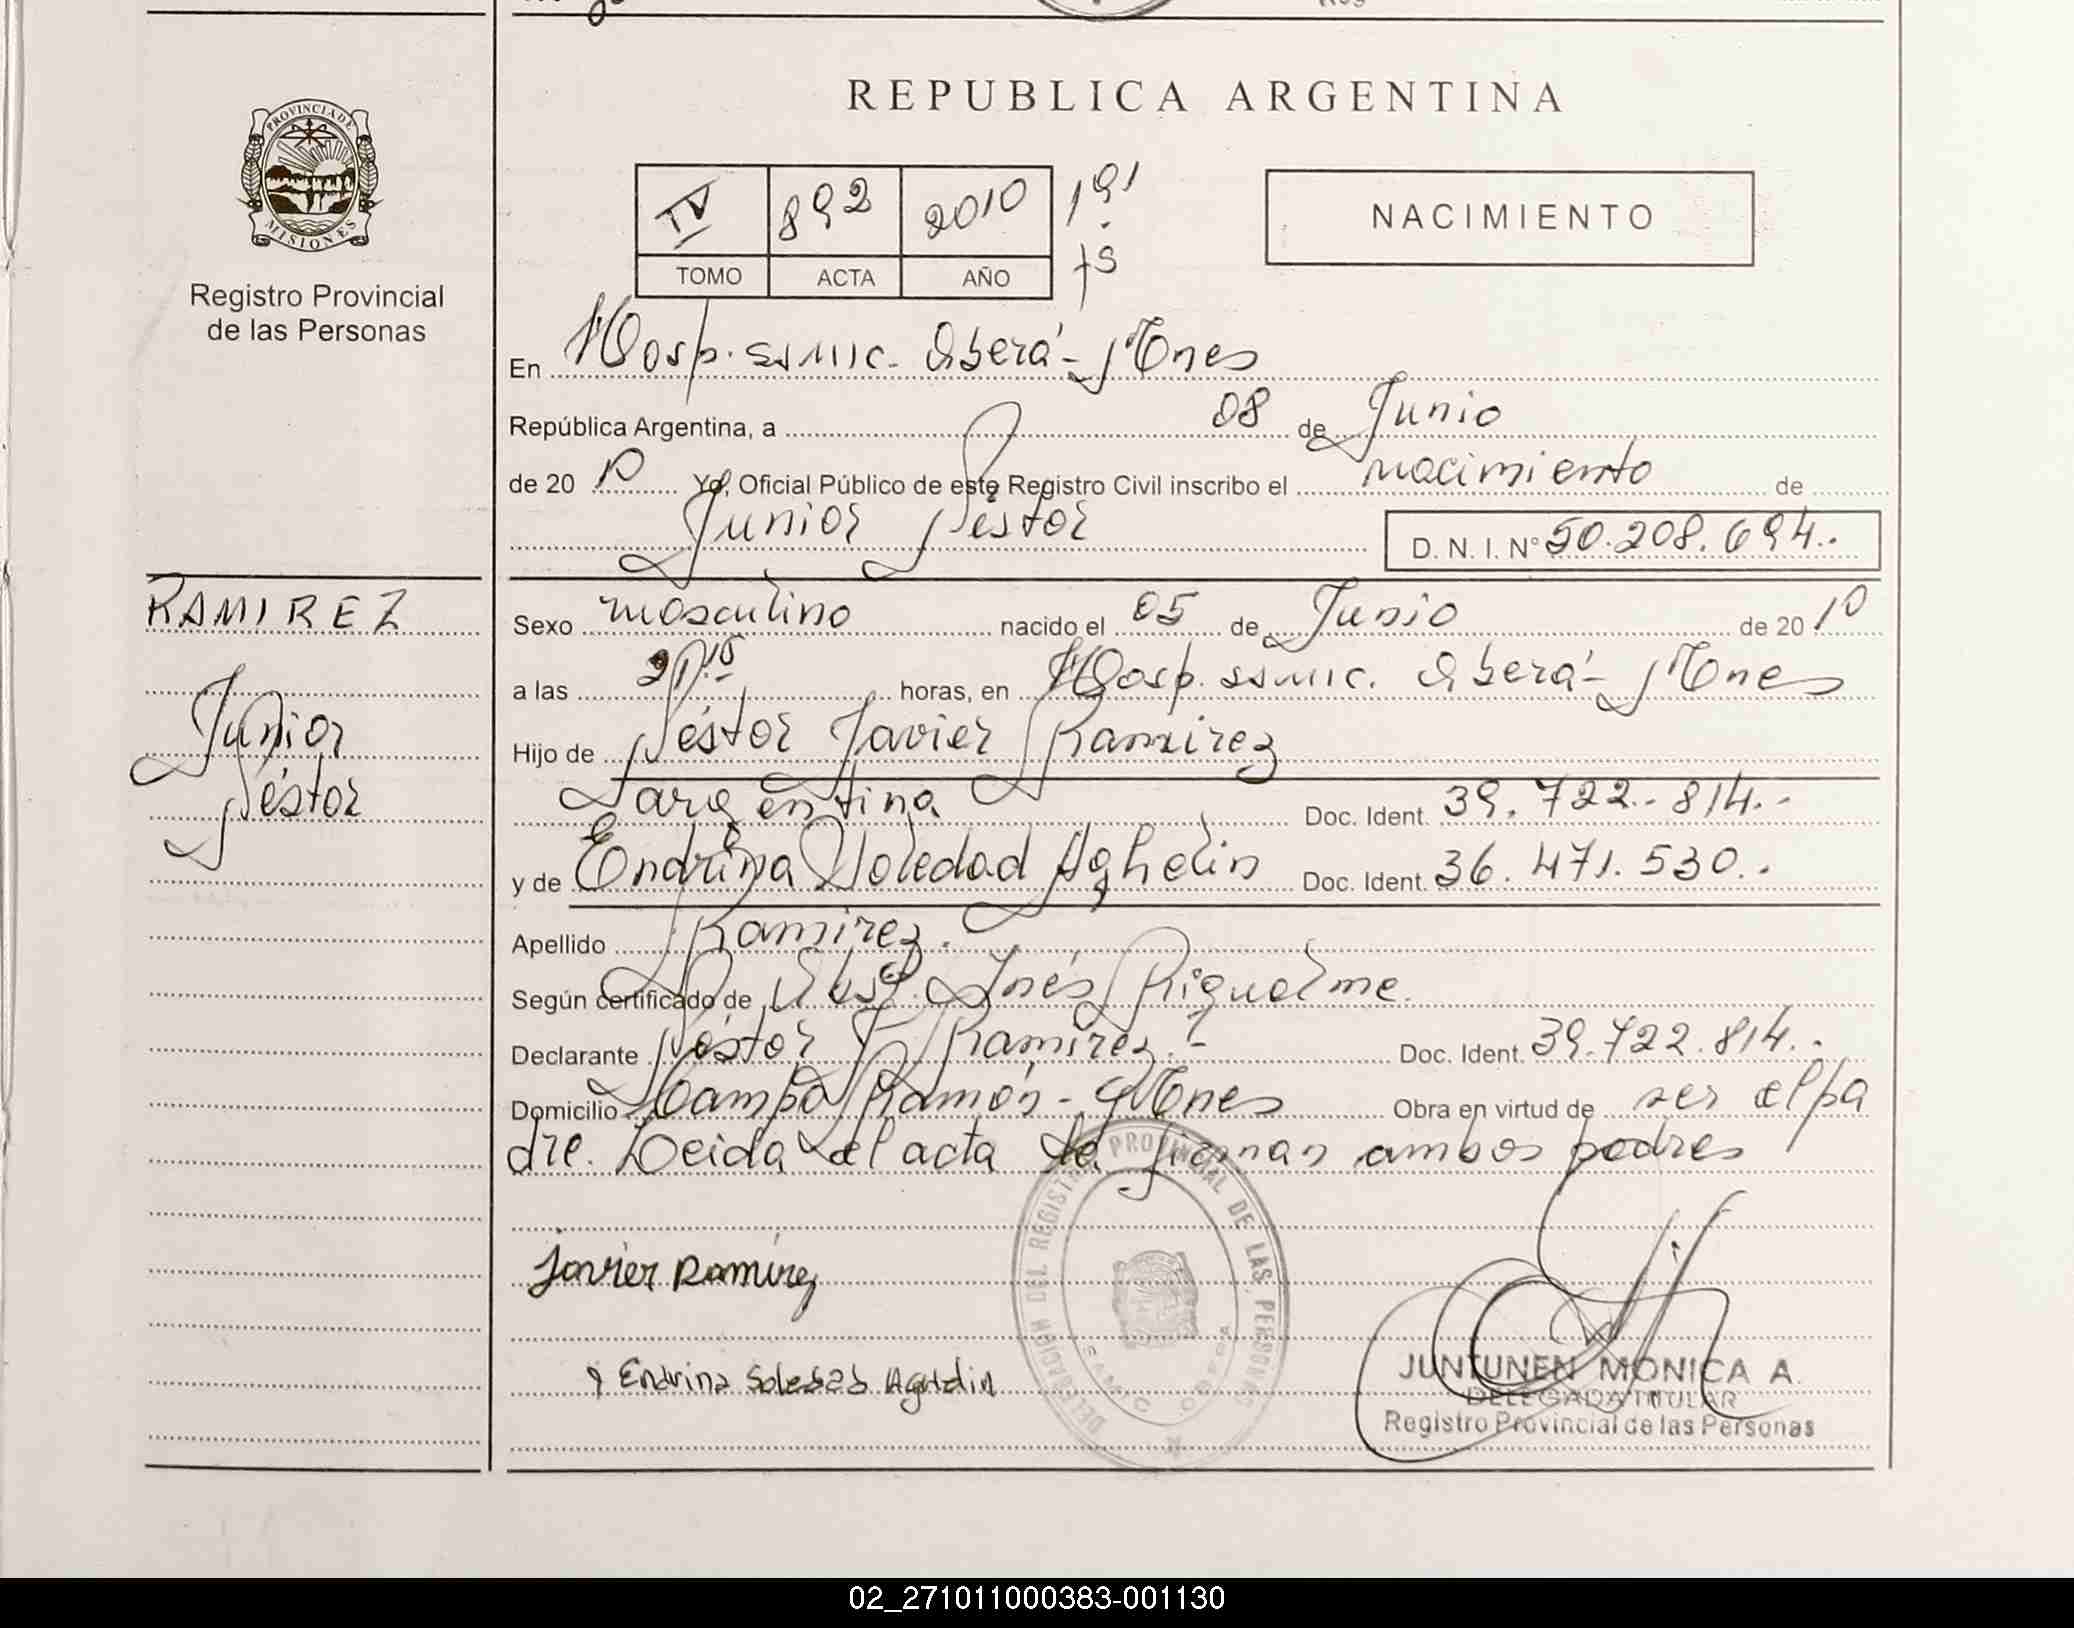 REPUBLICA ARGENTINA
PROVINCIA DE
MISIONES
Registro Provincial
de las Personas
IV 892 2010 191
TOMO ACTA AÑO fs
NACIMIENTO
En Hosp. SSMIC. Oberá - Mnes
República Argentina, a 08 de Junio
de 2010 Yo, Oficial Público de este Registro Civil inscribo el nacimiento de
Junior Néstor D. N. I. N° 50.208.694..
RAMIREZ
Junior
Néstor
Sexo masculino nacido el 05 de Junio de 2010
a las 21:15 horas, en Hosp. SSMIC. Oberá - Mnes
Hijo de Néstor Javier Ramirez
argentina Doc. Ident. 39.722.814.-
y de Endrina Soledad Aghelin Doc. Ident. 36.471.530..
Apellido Ramirez.
Según certificado de Obst. Inés Riquelme.
Declarante Néstor J. Ramirez.- Doc. Ident. 39.722.814..
Domicilio Campo Ramón - Mnes Obra en virtud de ser el pa
dre. Leida el acta la firman ambos padres
Javier Ramirez
Endrina Soledad Aguelin
DELEGACION DEL REGISTRO PROVINCIAL DE LAS PERSONAS
JUNTUNEN MONICA A.
DELEGADA TITULAR
Registro Provincial de las Personas
02_271011000383-001130